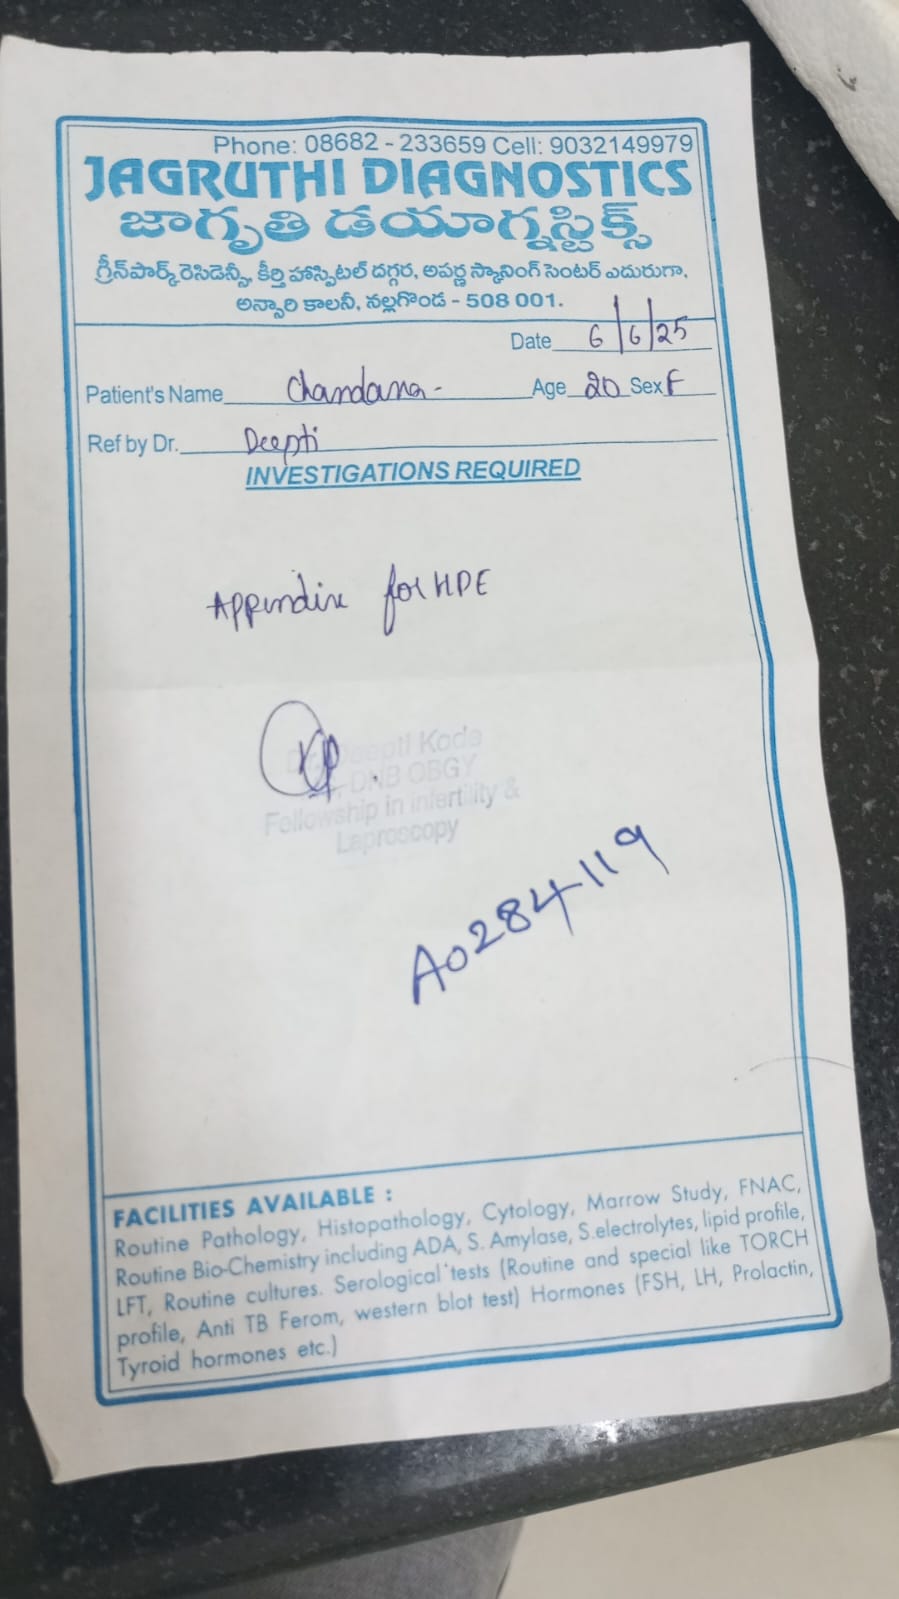 Phone: 08682 - 233659 Cell: 9032149979
JAGRUTHI DIAGNOSTICS
జాగృతి డయాగ్నస్టిక్స్
గ్రీన్‌పార్క్ రెసిడెన్సీ, కీర్తి హాస్పిటల్ దగ్గర, అపర్ణ స్కానింగ్ సెంటర్ ఎదురుగా,
అన్సారి కాలనీ, నల్లగొండ - 508 001.
Date 6/6/25
Patient's Name Chandana - Age 20 Sex F
Ref by Dr. Deepti
INVESTIGATIONS REQUIRED
Appendix for HPE
Dr. Deepti Kode
DNB OBGY
Fellowship in infertility &
Laproscopy
A0284119
FACILITIES AVAILABLE :
Routine Pathology, Histopathology, Cytology, Marrow Study, FNAC,
Routine Bio-Chemistry including ADA, S. Amylase, S.electrolytes, lipid profile,
LFT, Routine cultures. Serological tests (Routine and special like TORCH
profile, Anti TB Ferom, western blot test) Hormones (FSH, LH, Prolactin,
Tyroid hormones etc.)